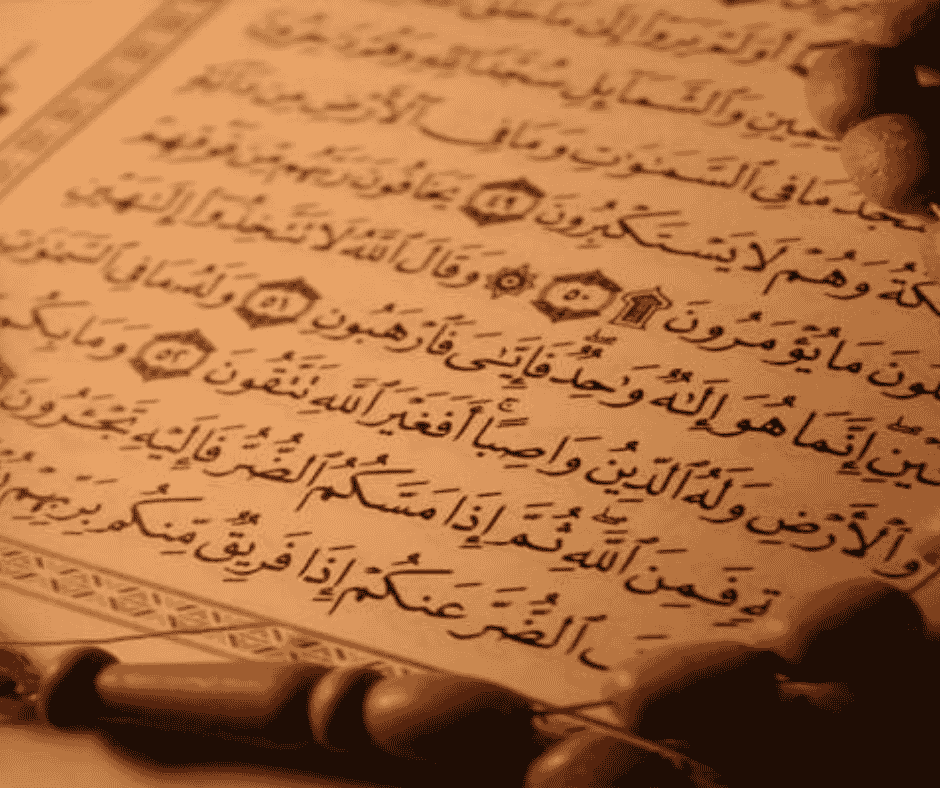 أَوَلَمْ يَرَوْا۟ إِلَىٰ مَا خَلَقَ
وَٱلشَّمَآئِلِ سُجَّدًا لِّلَّهِ وَهُمْ دَٰخِرُونَ
مَا فِى ٱلسَّمَٰوَٰتِ وَمَا فِى ٱلْأَرْضِ مِن دَآبَّةٍ
وَهُمْ لَا يَسْتَكْبِرُونَ ٤٩ يَخَافُونَ رَبَّهُم مِّن فَوْقِهِمْ
مَا يُؤْمَرُونَ ۩ ٥٠ ۞ وَقَالَ ٱللَّهُ لَا تَتَّخِذُوٓا۟ إِلَٰهَيْنِ
إِنَّمَا هُوَ إِلَٰهٌ وَٰحِدٌ ۖ فَإِيَّٰىَ فَٱرْهَبُونِ ٥١ وَلَهُۥ مَا فِى ٱلسَّمَٰوَٰتِ
وَٱلْأَرْضِ وَلَهُ ٱلدِّينُ وَاصِبًا ۚ أَفَغَيْرَ ٱللَّهِ تَتَّقُونَ ٥٢ وَمَا بِكُم
فَمِنَ ٱللَّهِ ۖ ثُمَّ إِذَا مَسَّكُمُ ٱلضُّرُّ فَإِلَيْهِ تَجْـَٔرُونَ
ٱلضُّرَّ عَنكُمْ إِذَا فَرِيقٌ مِّنكُم بِرَبِّهِمْ